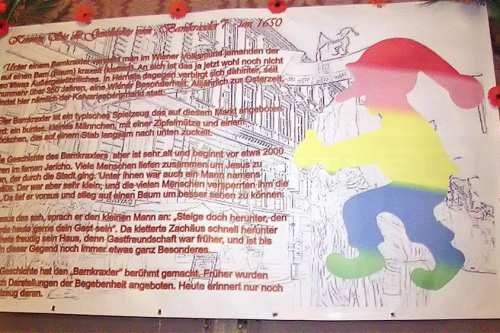 Kennen Sie die Geschichte vom "Bamkraxler"? um 1650
Unter einem Bamkraxler versteht man im Wiener Volksmund jemanden der
auf einen Bam (Baum) kraxelt (klettert). An sich ist das ja jetzt wohl noch nicht
etwas Außergewöhnliches. In Hernals dagegen verbirgt sich dahinter, seit
nunmehr über 350 Jahren, eine Wiener Besonderheit. Alljährlich zur Osterzeit,
findet hier nämlich der Kalvarienbergmarkt statt.
Bamkraxler ist ein typisches Spielzeug das auf diesem Markt angeboten
wird: ein buntes, kleines Männchen, mit einer Zipfelmütze und einem
das auf einem Stab langsam nach unten zuckelt.
Geschichte des Bamkraxlers aber ist sehr alt und beginnt vor etwa 2000
im fernen Jericho. Viele Menschen liefen zusammen um Jesus zu
der durch die Stadt ging. Unter ihnen war auch ein Mann namens
Der war aber sehr klein; und die vielen Menschen versperrten ihm die
Da lief er voraus und stieg auf einen Baum um besser sehen zu können.
das sah, sprach er den kleinen Mann an: "Steige doch herunter, denn
heute gerne dein Gast sein". Da kletterte Zachäus schnell herunter
freudig sein Haus, denn Gastfreundschaft war früher, und ist bis
dieser Gegend noch immer etwas ganz Besonderes.
Geschichte hat den "Bamkraxler" berühmt gemacht. Früher wurden
Darstellungen der Begebenheit angeboten. Heute erinnert nur noch
daran.